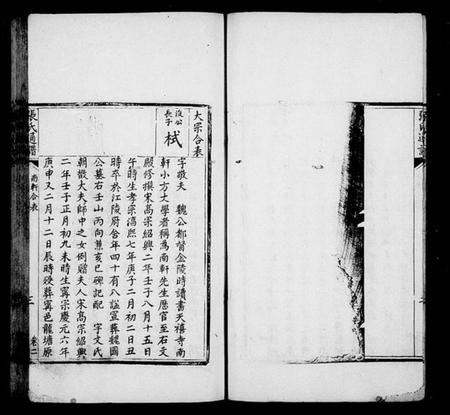 大宗合表
浚公
長子
栻
字敬夫　魏公都督金陵時讀書天禧寺南
軒小方大學者稱爲南軒先生歷官至右文
殿修撰宋高宗紹興二年壬子八月十五日
午時生孝宗淳熙七年庚子二月初二日丑
時卒於江陵府舍年四十有八諡宣葬魏國
公墓右壬山丙向兼亥巳碑記配　宇文氏
朝散大夫師中之女例贈夫人宋高宗紹興
二年壬子正月初九未時生寧宗慶元六年
庚申又二月十二日辰時歿葬寧邑龍塘原
張氏通譜
南軒合表
卷二